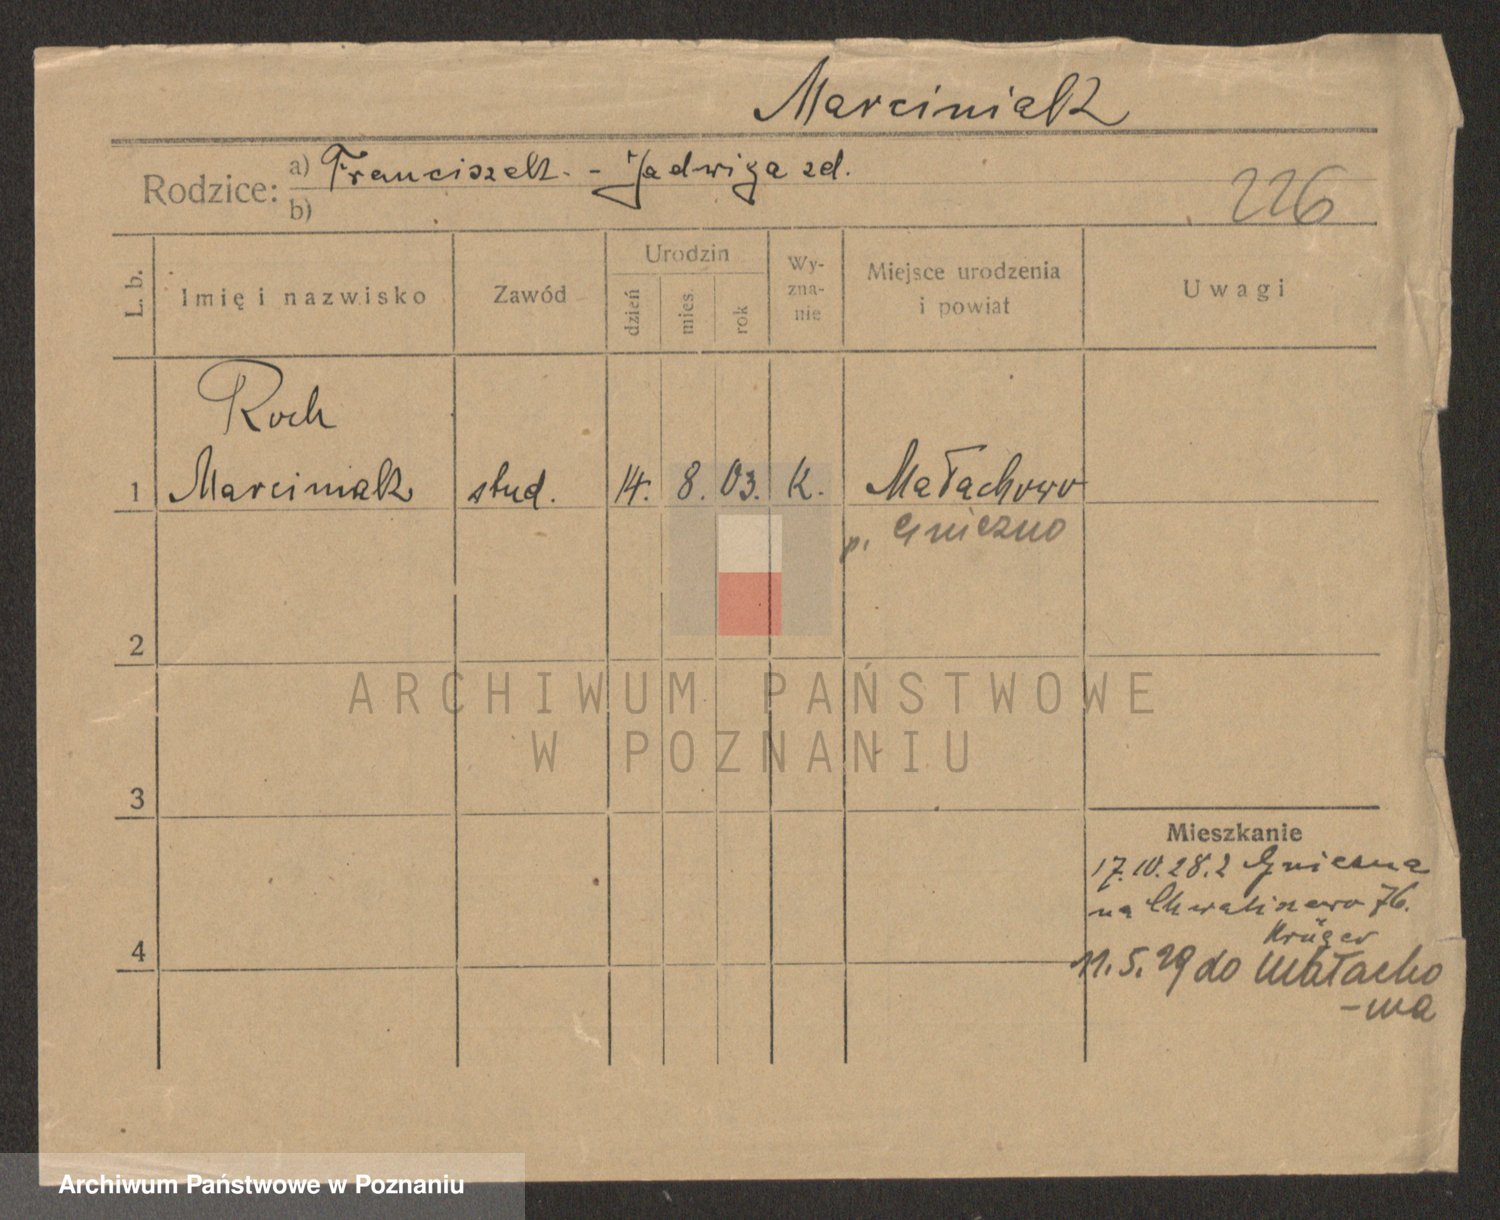 Marciniak
Rodzice: a) Franciszek. - Jadwiga zd.
b)
226
L. b.
Imię i nazwisko
Zawód
Urodzin
dzień
mies.
rok
Wy-
zna-
nie
Miejsce urodzenia
i powiat
Uwagi
Roch
1 Marciniak stud. 14. 8. 03. k. Małachowo
p. Gniezno
2
ARCHIWUM PAŃSTWOWE
W POZNANIU
3
Mieszkanie
17.10.28. z Gniezna
na Chwaliszewo 76.
Krüger
4
11.5.29 do Małacho
-wa
Archiwum Państwowe w Poznaniu